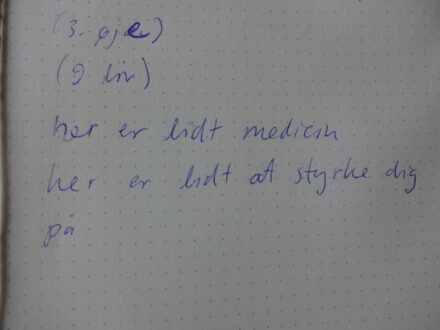 (3. øje)
(9 liv)
her er lidt medicin
her er lidt at styrke dig
på